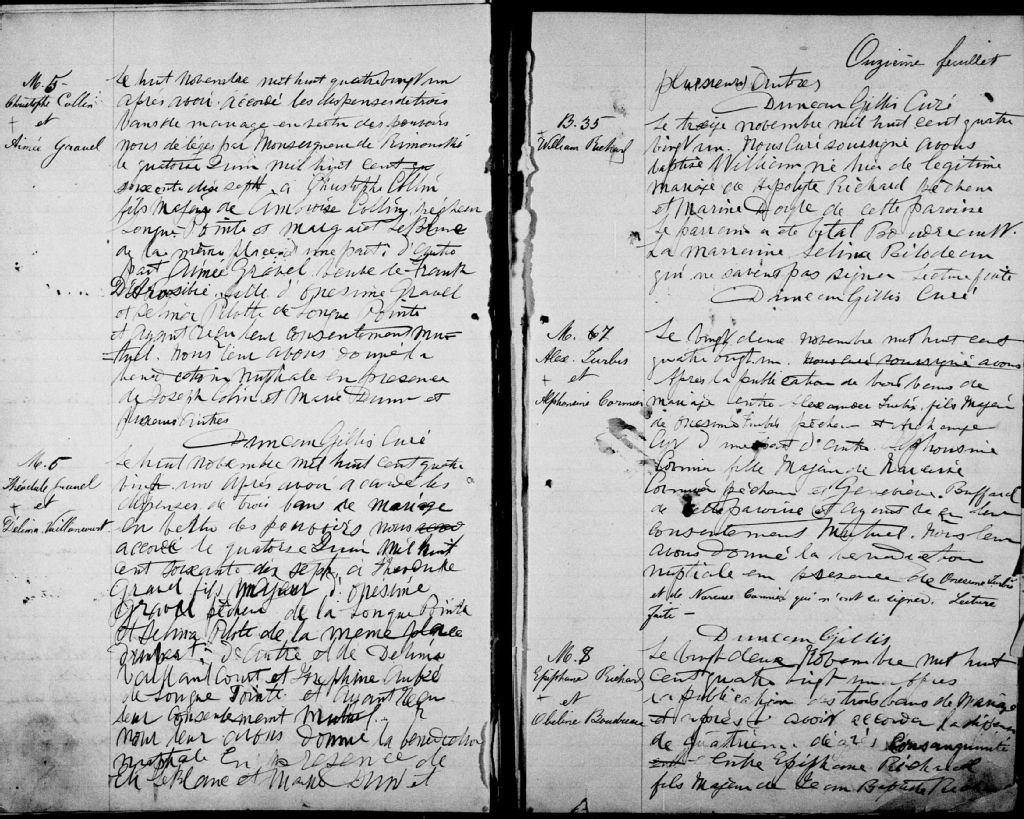 M. 5
Christophe Collin
+ et
Aimée Gravel
Le huit Novembre mil huit quatre vingt un
après avoir accordé les dispenses de trois
bans de mariage en vertu des pouvoirs
nous délégés par Monseigneur de Rimouski
le quatorze Juin mil huit cent
soixante dix sept, à Christophe Collin
fils Majeur de Collin, pêcheur
Longue Pointe et Margaret Leblanc
de la même place d'une part; d'autre
part Aimée Gravel, veuve de Frank
fille d'Onesime Gravel
et Pilote de Longue Pointe
et ayant reçu leur consentement mu-
tuel. Nous leur avons donné la
bénédiction nuptiale en presence
de Joseph et Marie Dunn et
plusieurs autres
Duncan Gillis Curé
M. 5
Théodule Gravel
+ et
Delima Vaillancourt
Le huit Novembre mil huit cent quatre
vingt un après avoir accordé les
dispenses de trois ban de mariage
en vertu des pouvoirs nous
accordé le quatorze Juin mil huit
cent soixante dix sept, à
Gravel fils Majeur d'Onesime
Gravel pêcheur de la Longue Pointe
et Pilote de la meme place
d'autre et de Delima
Vaillancourt et Josephine Aubé
de Longue Pointe et ayant reçu
leur consentement mutuel
nous leur avons donné la bénédiction
nuptiale En presence de
Leblanc et Marie Dunn et
Onzième feuillet
plusieurs Autres
Duncan Gillis Curé
B. 35
William Richard
Le treize novembre mil huit cent quatre
vingt un. Nous Curé soussigné avons
baptisé William, né hier de legitime
mariage de Hipolyte Richard Pêcheur
et Marine Doyle de cette paroisse
Le parrain a été Vital
La marraine Selina Robidoux
qui ne savent pas signer Lecture faite
Duncan Gillis Curé
M. 67
Alex. Turbis
+ et
Alphonsine Cormier
Le vingt deux novembre mil huit cent
quatre vingt un. Nous curé soussigné avons
Après la publication de trois bans de
mariage entre Alexander Turbis, fils Majeur
de Onesime Turbis pêcheur et Archange
Cyr d'une part d'autre Alphonsine
Cormier fille Majeur de Narcisse
Cormier pêcheur et Geneviève Boffard
de cette paroisse et Ayant reçu leur
consentement Mutuel. Nous leur
avons Donné la benediction
nuptiale en presence de Onesime Turbis
et de Narcisse Cormier qui n'ont su signer. Lecture
faite -
Duncan Gillis
M. 8
Epiphane Richard
+ et
Obeline Boudreau
Le vingt deux Novembre mil huit
cent quatre vingt un après
la publication des trois bans de Mariage
et après avoir accorder la dispense
de quatrième dégrés Consanguinité
entre Epiphane Richard
fils Majeur de Jean Baptiste Richard